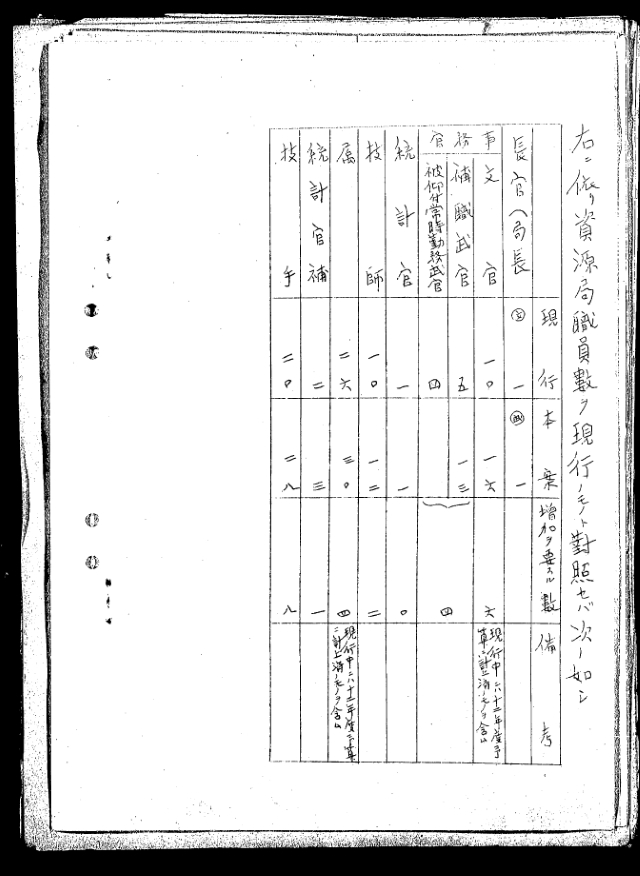 右ニ依リ資源局職員數ヲ現行ノモノト對照セバ次ノ如シ
現行 本案 增加ヲ要スル數 備考
長官（局長） 一 一
事務官
文官 一〇 一六 六 現行中ニハ十二年度予
算ニ計上濟ノモノヲ含ム
補職武官 五 一三 四
被仰付常時勤務武官 四
統計官 一 一 〇
技師 一〇 一二 二
属 二六 三〇 四 現行中ニハ十二年度予算
ニ計上濟ノモノヲ含ム
統計官補 二 三 一
技手 二〇 二八 八